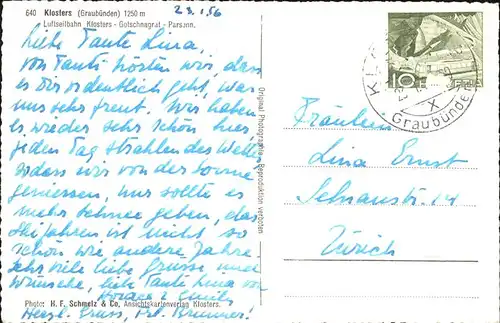 23.1.56
640 Klosters (Graubünden) 1250 m
Luftseilbahn Klosters - Gotschnagrat - Parsenn.
Liebe Tante Lina,
von Tanti hörten wir, dass
es Dir ordentlich geht, was
uns sehr freut. Wir haben
es wieder sehr schön hier,
jeden Tag strahlendes Wetter
sodass wir von der Sonne
geniessen, nur sollte es
mehr Schnee geben, das
Skifahren ist nicht so
schön wie andere Jahre
Sehr viele liebe Grüsse und
Wünsche, liebe Tante Lina von
Photo: H. F. Schmelz & Co, Ansichtskartenverlag Klosters.
Herzl. Gruss, Brunner!
Original Photographie Reproduktion verboten
10
Graubünden
Fräulein
Lina Ernst
14
Zürich